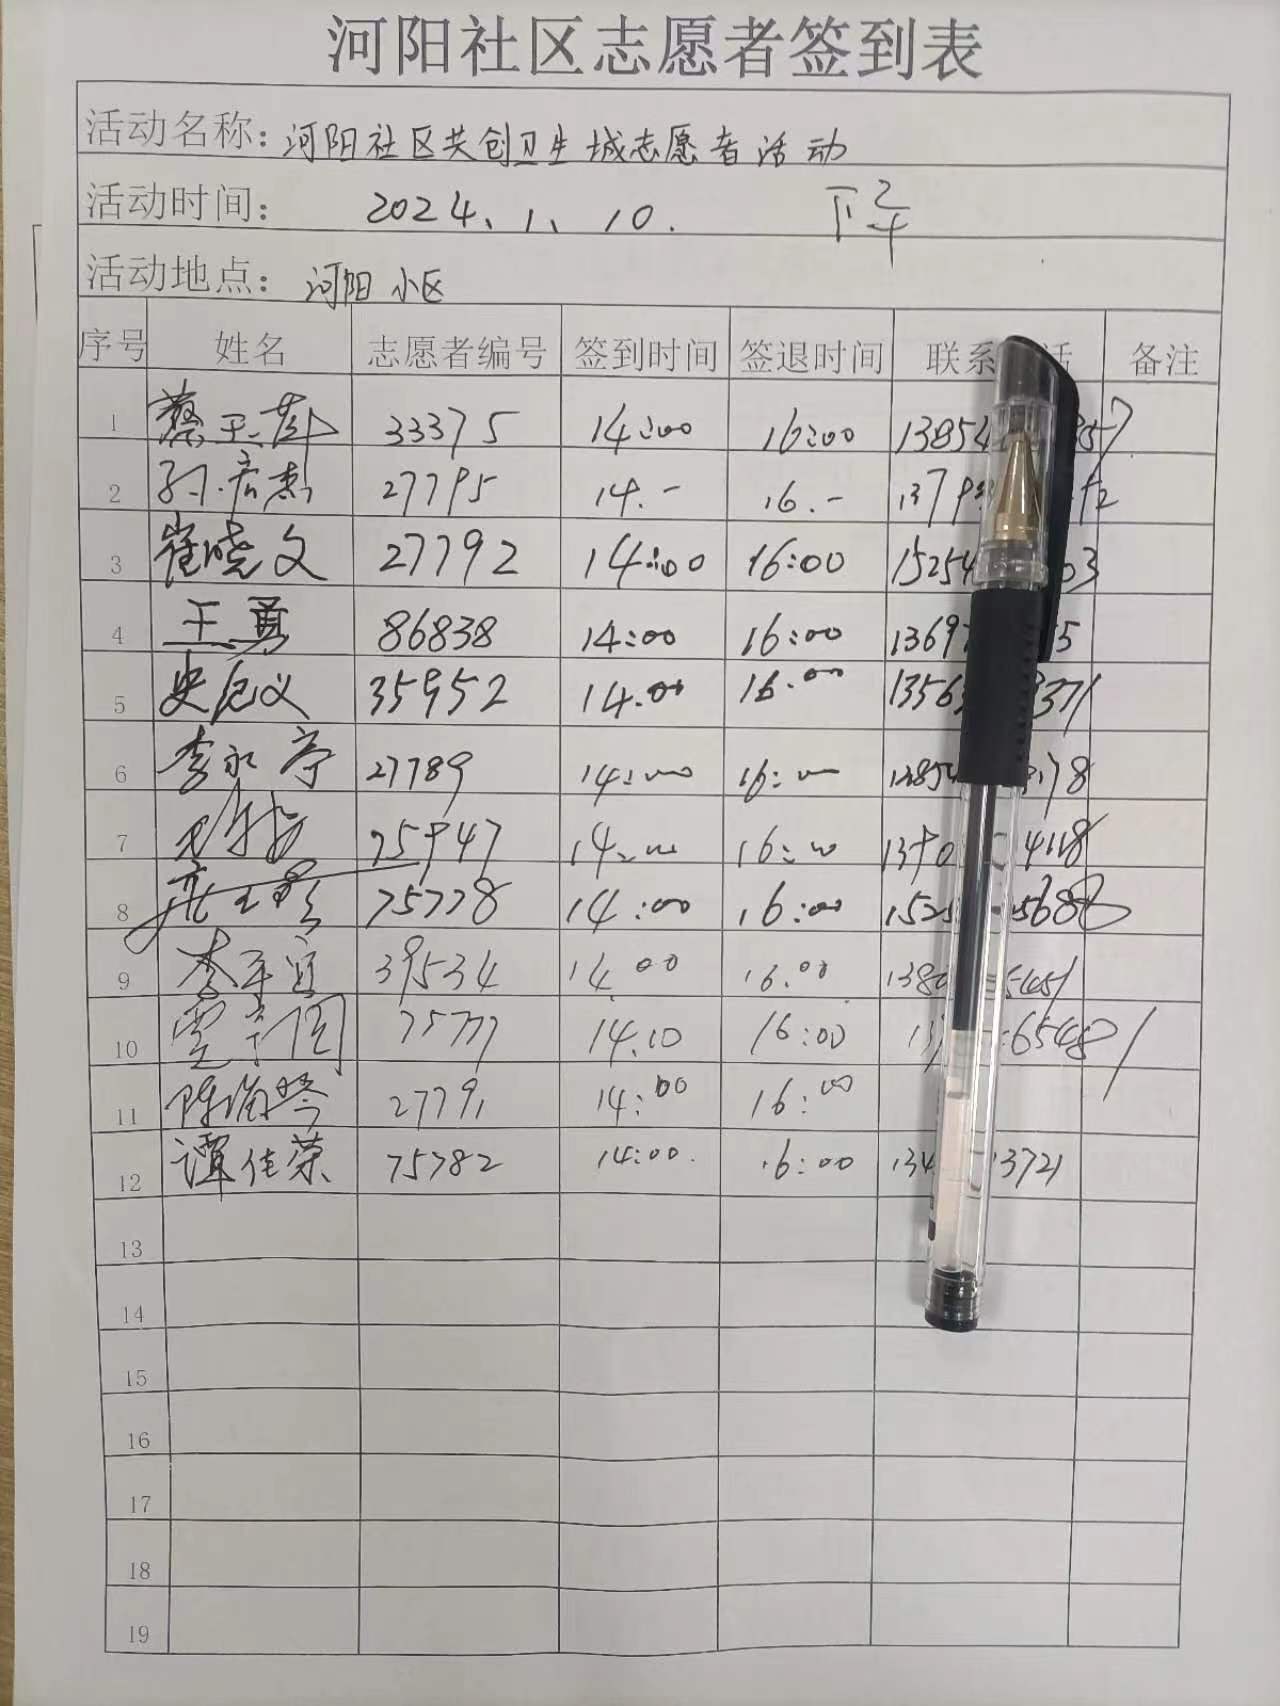 河阳社区志愿者签到表
活动名称：河阳社区共创卫生城志愿者活动
活动时间： 2024、1、10. 下午
活动地点：河阳小区
序号 姓名 志愿者编号 签到时间 签退时间 联系 话 备注
1 蔡玉萍 33375 14:00 16:00 13854 357
2 27795 14.- 16.- 1379 12
3 崔晓文 27792 14:00 16:00 15254 03
4 王勇 86838 14:00 16:00 1369 5
5 史 义 35952 14.00 16.00 13563 371
6 李永亭 27789 14:00 16:00 13854 178
7 75947 14:00 16:00 1390 4118
8 75778 14:00 16:00 152 5688
9 李 39534 14 00 16.00 138 5451
10 75777 14.10 16:00 13 6548
11 陈 琴 27791 14:00 16:00
12 谭佳荣 75782 14:00. 16:00 134 3721
13
14
15
16
17
18
19